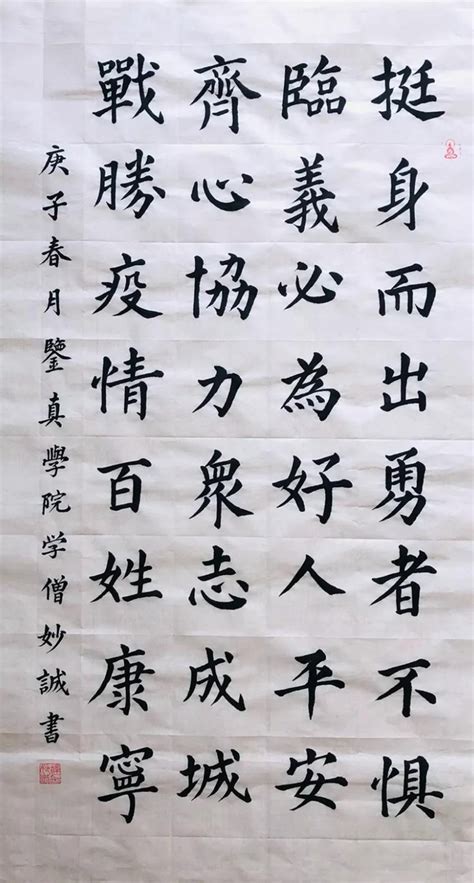 挺身而出勇者不惧
臨義必為好人平安
齊心協力衆志成城
戰勝疫情百姓康寧
庚子春月鑒真學院学僧妙誠書